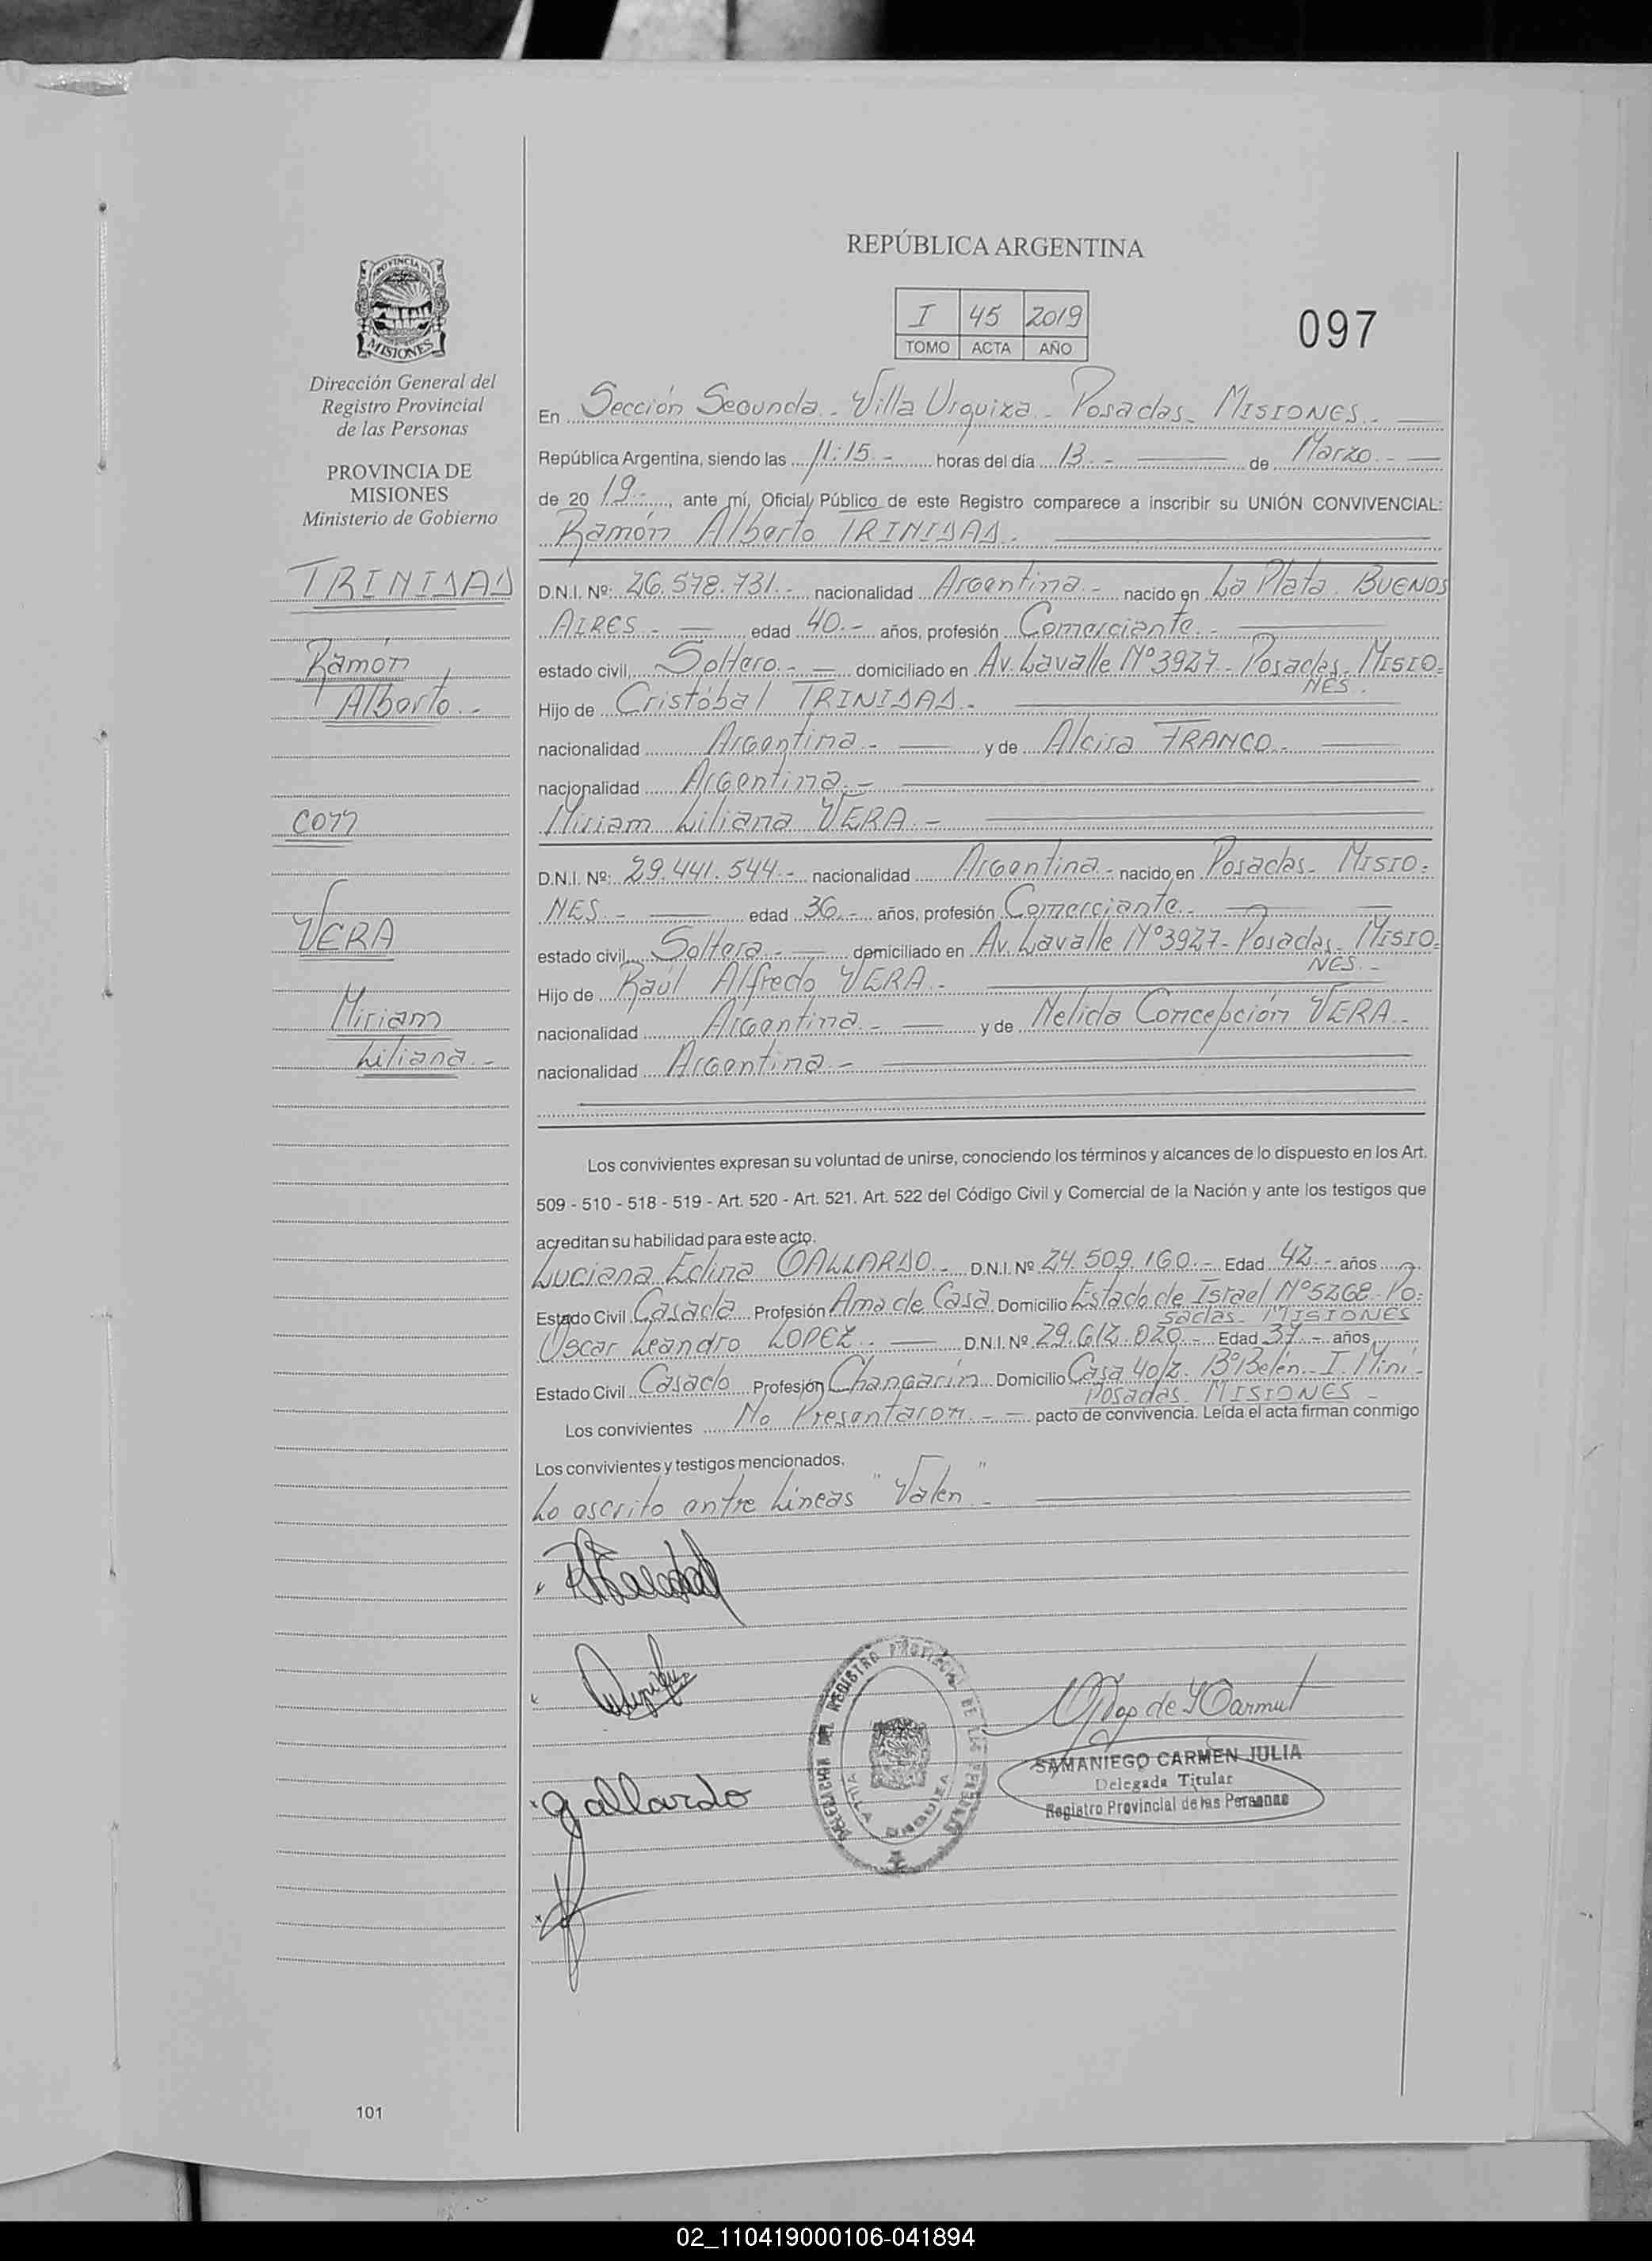 REPÚBLICA ARGENTINA
I 45 2019
TOMO ACTA AÑO
097
PROVINCIA DE
MISIONES
Dirección General del
Registro Provincial
de las Personas
PROVINCIA DE
MISIONES
Ministerio de Gobierno
TRINIDAD
Ramón
Alberto.-
con
VERA
Miriam
Liliana.-
En Sección Segunda - Villa Urquiza - Posadas - MISIONES.-
República Argentina, siendo las 11:15.- horas del día 13.- de Marzo.-
de 2019.-, ante mí, Oficial Público de este Registro comparece a inscribir su UNIÓN CONVIVENCIAL:
Ramón Alberto TRINIDAD.-
D.N.I. Nº: 26.578.731.- nacionalidad Argentina.- nacido en La Plata. BUENOS
AIRES.- edad 40.- años, profesión Comerciante.-
estado civil Soltero.- domiciliado en Av. Lavalle Nº3927- Posadas- MISIO=
NES.
Hijo de Cristóbal TRINIDAD.-
nacionalidad Argentina.- y de Alcira FRANCO.-
nacionalidad Argentina.-
Miriam Liliana VERA.-
D.N.I. Nº: 29.441.544.- nacionalidad Argentina.- nacido en Posadas- MISIO=
NES.- edad 36.- años, profesión Comerciante.-
estado civil Soltera.- domiciliado en Av. Lavalle Nº3927- Posadas- MISIO=
NES.-
Hijo de Raúl Alfredo VERA.-
nacionalidad Argentina.- y de Nelida Concepción VERA.-
nacionalidad Argentina.-
Los convivientes expresan su voluntad de unirse, conociendo los términos y alcances de lo dispuesto en los Art.
509 - 510 - 518 - 519 - Art. 520 - Art. 521. Art. 522 del Código Civil y Comercial de la Nación y ante los testigos que
acreditan su habilidad para este acto.
Luciana Edina GALLARDO.- D.N.I. Nº 24.509.160.- Edad 42.- años
Estado Civil Casada Profesión Ama de Casa Domicilio Estado de Israel Nº5268- Po=
sadas- MISIONES
Oscar Leandro LOPEZ.- D.N.I. Nº 29.612.020.- Edad 37.- años
Estado Civil Casado Profesión Changarín Domicilio Casa 4012- BºBelén- I Miní-
Posadas- MISIONES-
Los convivientes No Presentaron.- pacto de convivencia. Leída el acta firman conmigo
Los convivientes y testigos mencionados.
Lo escrito entre Líneas "Valen"-
gallardo
DELEGACION DEL REGISTRO PROVINCIAL DE LAS PERSONAS
VILLA URQUIZA
SAMANIEGO CARMEN JULIA
Delegada Titular
Registro Provincial de las Personas
101
02_110419000106-041894